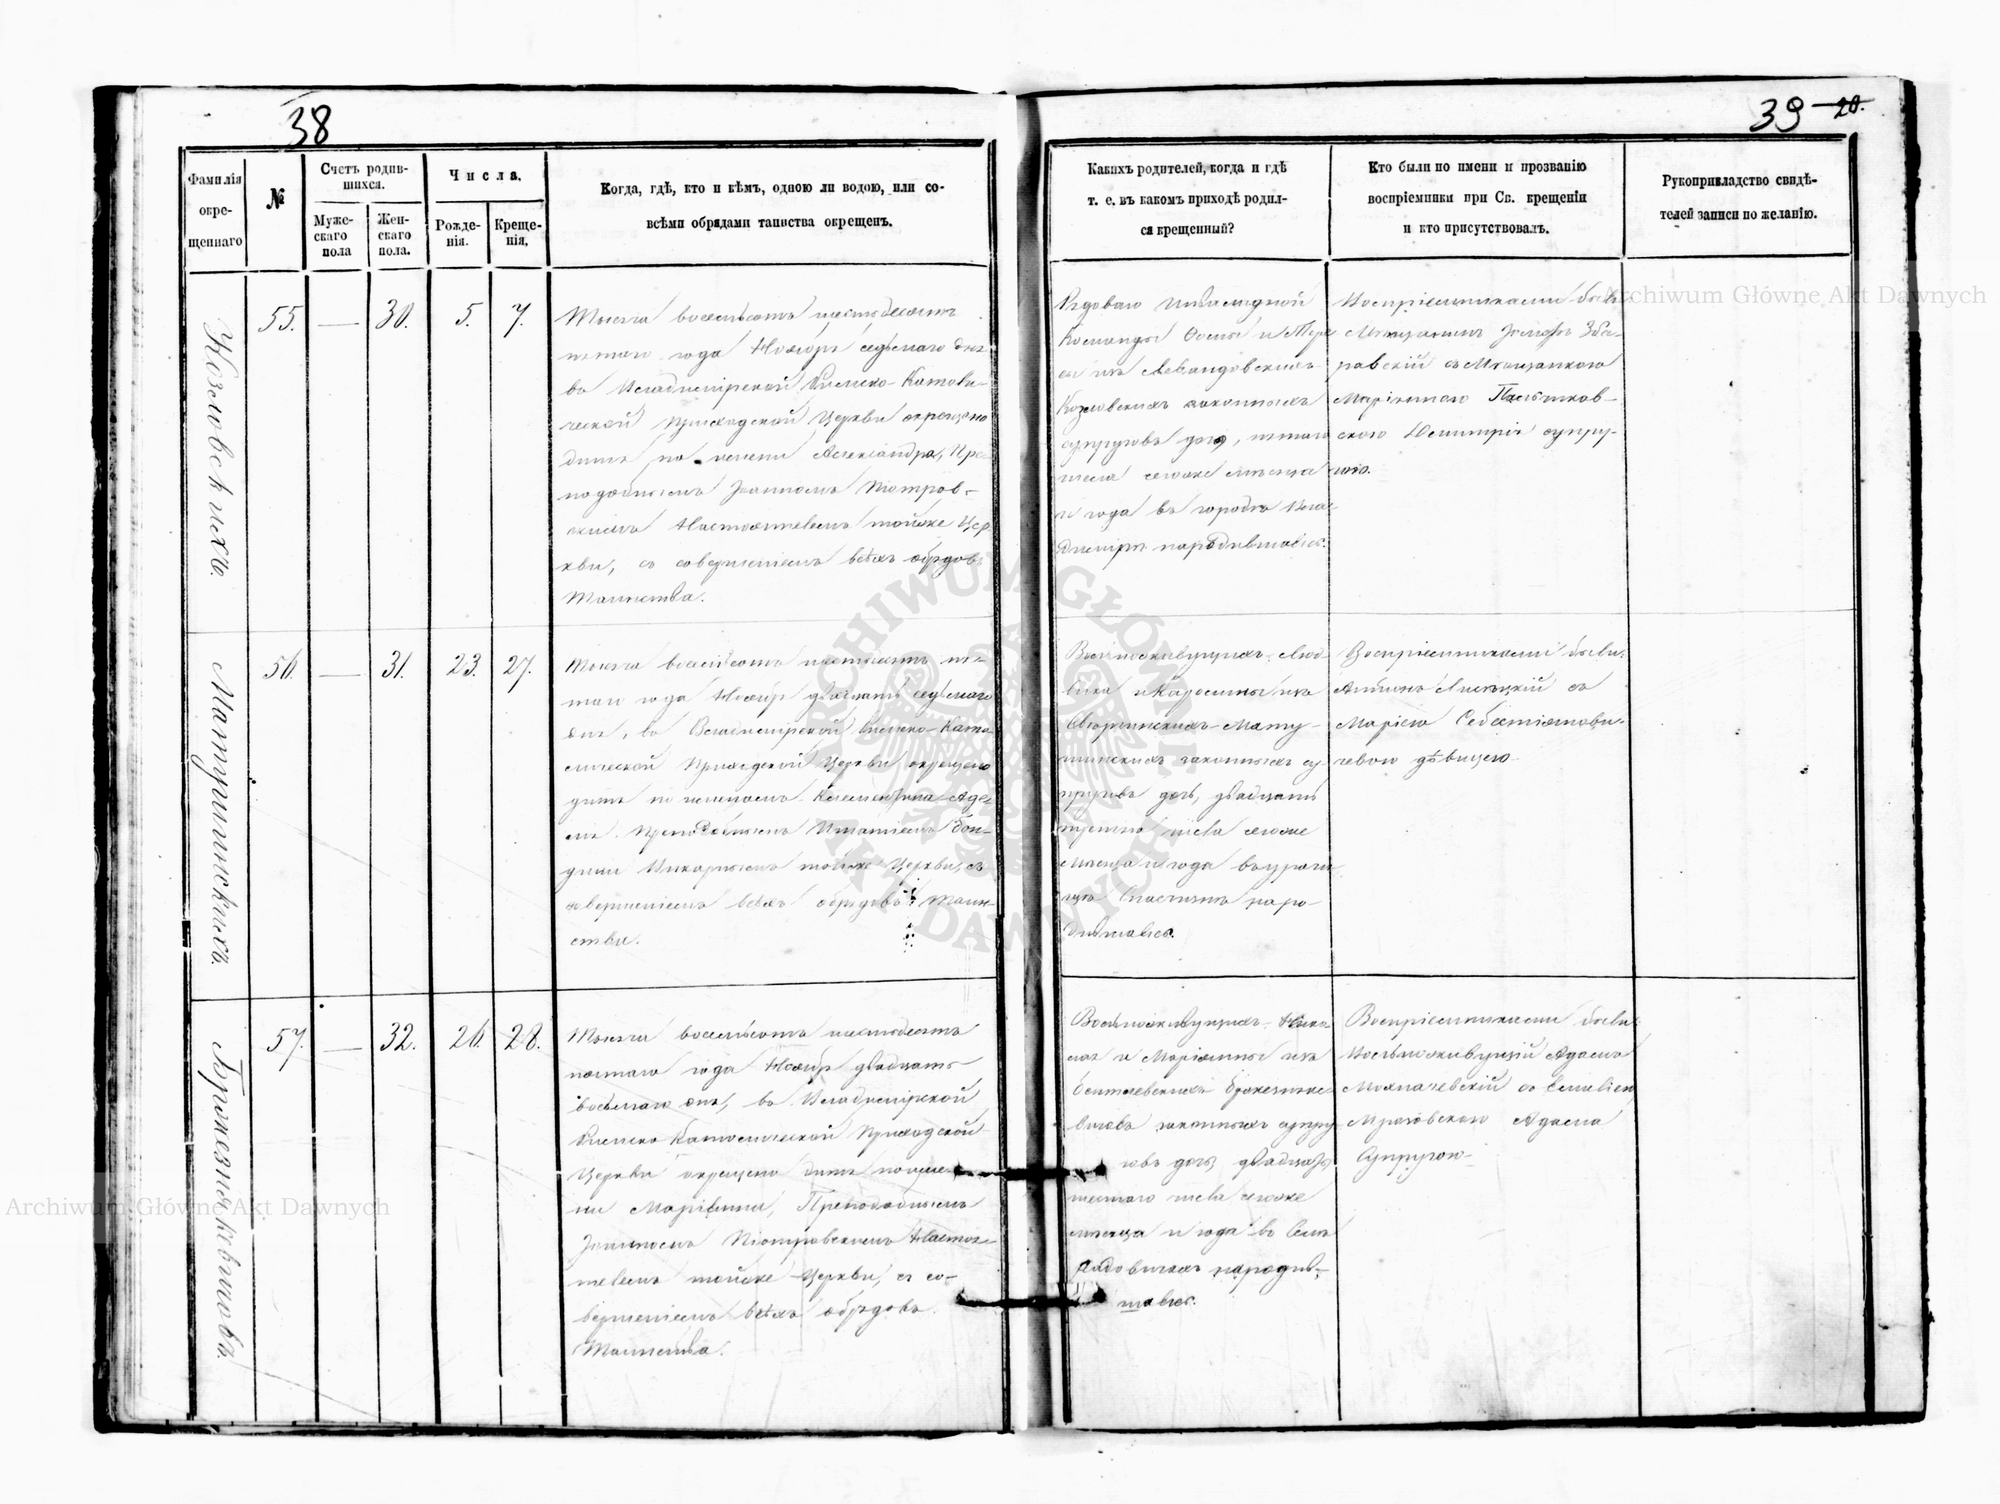 38
39 20.
Фамилія
окре-
щеннаго
№
Счетъ родив-
шихся.
Муже-
скаго
пола
Жен-
скаго
пола.
Числа.
Рожде-
нія.
Креще-
нія.
Когда, гдѣ, кто и кѣмъ, одною ли водою, или со-
всѣми обрядами таинства окрещенъ.
Какихъ родителей, когда и гдѣ
т. е. въ какомъ приходѣ родил-
ся крещенный?
Кто были по имени и прозванію
воспріемники при Св. крещеніи
и кто присутствовалъ.
Рукоприкладство свидѣ-
телей записи по желанію.
Козловскихъ.
55. — 30. 5. 7.
Тысяча восемьсотъ шестьдесятъ
пятаго года Ноября седьмаго дня
во Владимірской Римско-Католи-
ческой Приходской Церкви окрещено
дитя по имени Александра, Пре-
подобнымъ Іоанномъ Піотров-
скимъ Настоятелемъ тойже Цер
кви, съ совершеніемъ всѣхъ обрядовъ
Таинства.
Рядоваго Инвалидной
Команды и
изъ Левандовскихъ
Козловскихъ законныхъ
супруговъ дочь, пятаго
числа сегоже мѣсяца
и года въ городѣ Вла-
димірѣ народившаяся.
Воспріемниками были
Мѣщанинъ Іосифъ
съ Мѣщанкою
Маріанною
супру-
гою.
Матушинскихъ.
56. — 31. 23. 27.
Тысяча восемьсотъ шестьдесятъ пя-
таго года Ноября двадцать седьмаго
дня, во Владимірской Римско-Като
лической Приходской Церкви окрещено
дитя по именамъ Клементина-Аде-
ля. Преподобнымъ Игнатіемъ
Викарнымъ тойже Церкви, съ
совершеніемъ всѣхъ обрядовъ Таин-
ства.
Вольноживущихъ Люд-
вика и Каролины изъ
Матушинскихъ законныхъ су-
пруговъ дочь, двадцать
третьяго числа сегоже
мѣсяца и года въ
наро-
дившаяся.
Воспріемниками были
Антонъ съ
Маріею Себестіянови-
чевою дѣвицею
Бржезицкѣвичова.
57. — 32. 26. 28.
Тысяча восемьсотъ шестьдесятъ
пятаго года Ноября двадцать
восьмаго дня, во Владимірской
Римско Католической Приходской
Церкви окрещено дитя по име-
ни Маріанна, Преподобнымъ
Іоанномъ Піотровскимъ Настоя-
телемъ тойже Церкви, съ со-
вершеніемъ всѣхъ обрядовъ
Таинства.
Вольноживущихъ
и Маріанны изъ
законныхъ супру
говъ дочь двадцать
шестаго числа сегоже
мѣсяца и года въ Селѣ
народив-
шаяся.
Воспріемниками были
Вольноживущій Адамъ
съ
Адама
Супругою
Archiwum Główne Akt Dawnych
Archiwum Główne Akt Dawnych
ARCHIWUM GŁÓWNE AKT DAWNYCH